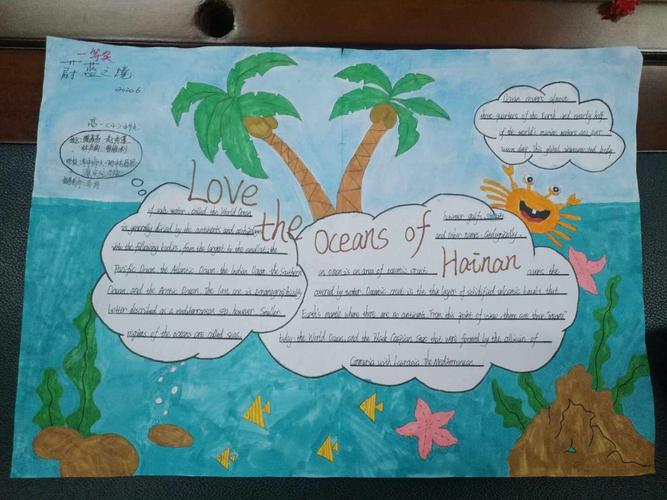 一等奖
蔚蓝之境
2020.6
Love
the
Oceans of
Hainan
Ocean covers almost
three quarters of the Earth and nearly half
of the world's marine waters are over
deep. This global, interconnected body
of salt water, called the World Ocean
is generally divided by the continents and
into the following bodies, from the largest to the smallest: the
Pacific Ocean, the Atlantic Ocean, the Indian Ocean, the Southern
Ocean and the Arctic Ocean. The last one is
better described as a mediterranean sea, however. Smaller
regions of the oceans are called seas,
however gulfs, straits
and other names. Geologically,
an ocean is an area of oceanic crust
covered by water. Oceanic crust is the thin layer of solidified volcanic basalt that
Earth's mantle where there are no continents. From this point of view, there are three "oceans"
today: the World Ocean, and the Black Caspian Seas that were formed by the collision of
with Laurasia. The Mediterranean